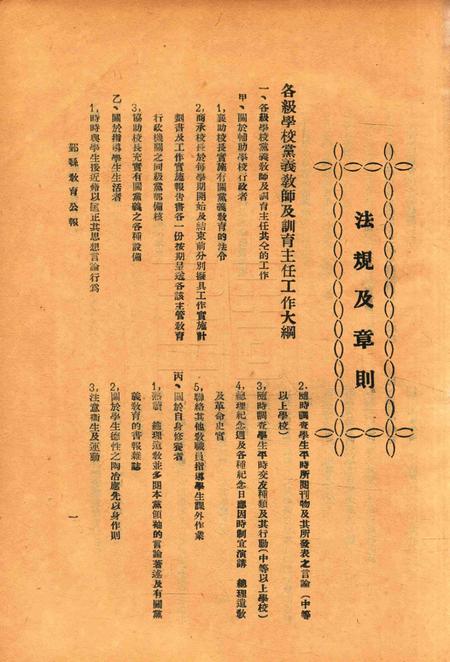 法規及章則
各級學校黨義敎師及訓育主任工作大綱
一、各級學校黨義敎師及訓育主任共仝的工作
甲、關於輔助學校行政者
1, 襄助校長實施有關黨義敎育的法令
2, 商承校長於每學期開始及結束前分別擬具工作實施計
劃書及工作實施報告書各一份按期呈送各該主管敎育
行政機關之同級黨部備核
3, 協助校長充實有關黨義之各種設備
乙、關於指導學生生活者
1, 時時與學生接近藉以匡正其思想言論行爲
2, 隨時調查學生平時所閱刊物及其所發表之言論(中等
以上學校)
3, 隨時調查學生平時交友種類及其行動(中等以上學校)
4, 總理紀念週及各種紀念日應因時制宜演講 總理遺敎
及革命史實
5, 聯絡其他敎職員指導學生課外作業
丙、關於自身修養者
1, 總理遺敎並多閱本黨領袖的言論著述及有關黨
義敎育的書報雜誌
2, 關於學生德性之陶冶應先以身作則
3, 注意衛生及運動
鄞縣敎育公報
一